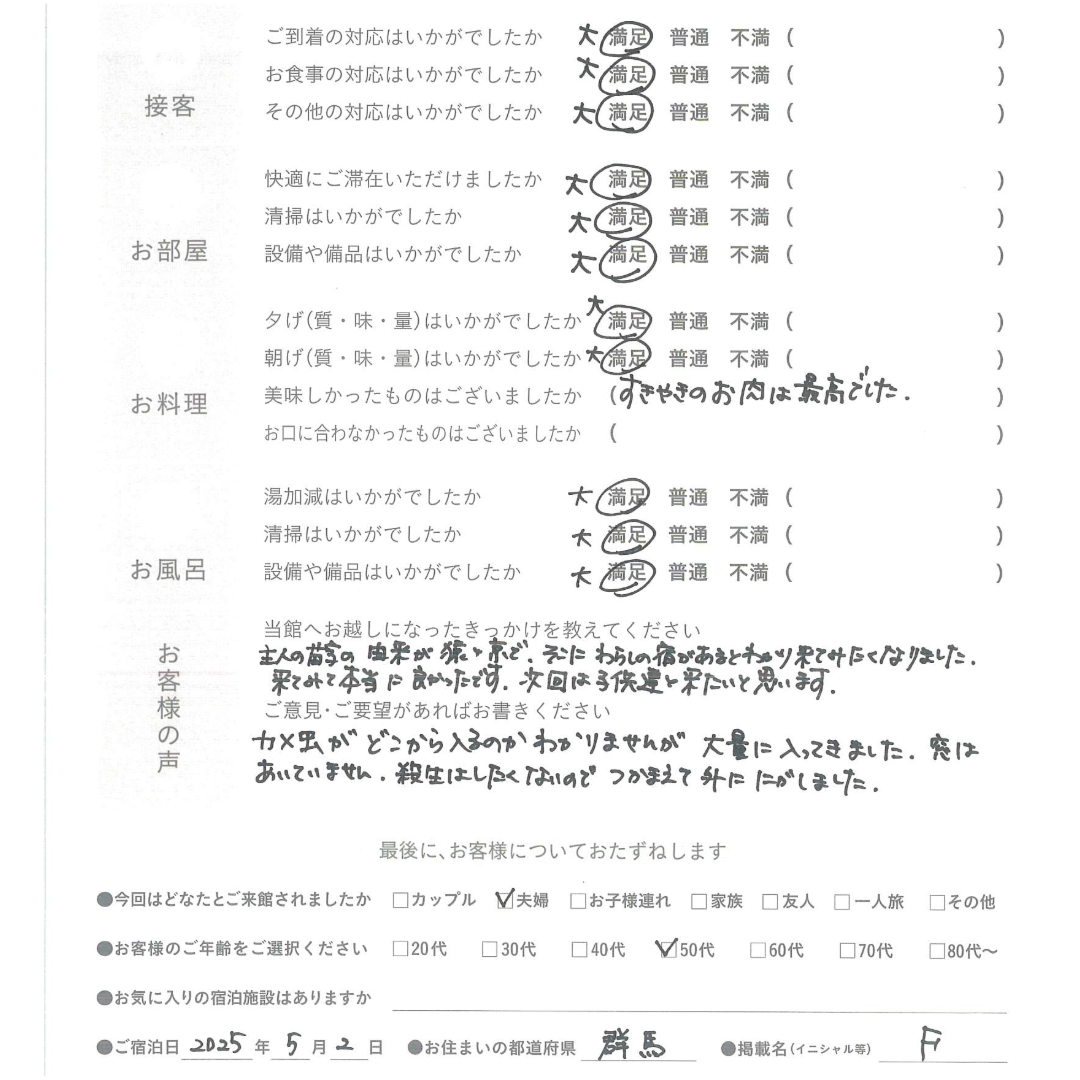 接客
ご到着の対応はいかがでしたか 大 満足 普通 不満 ( )
お食事の対応はいかがでしたか 大 満足 普通 不満 ( )
その他の対応はいかがでしたか 大 満足 普通 不満 ( )
お部屋
快適にご滞在いただけましたか 大 満足 普通 不満 ( )
清掃はいかがでしたか 大 満足 普通 不満 ( )
設備や備品はいかがでしたか 大 満足 普通 不満 ( )
お料理
夕げ(質・味・量)はいかがでしたか 大 満足 普通 不満 ( )
朝げ(質・味・量)はいかがでしたか 大 満足 普通 不満 ( )
美味しかったものはございましたか (すきやきのお肉は最高でした. )
お口に合わなかったものはございましたか ( )
お風呂
湯加減はいかがでしたか 大 満足 普通 不満 ( )
清掃はいかがでしたか 大 満足 普通 不満 ( )
設備や備品はいかがでしたか 大 満足 普通 不満 ( )
お客様の声
当館へお越しになったきっかけを教えてください
主人の苗字の由来が猿ヶ京で、そこにわらしの宿があるとわかり来てみたくなりました.
来てみて本当に良かったです. 次回は子供達と来たいと思います.
ご意見・ご要望があればお書きください
カメ虫がどこから入るのかわかりませんが 大量に入ってきました. 窓は
あいていません. 殺生はしたくないのでつかまえて外ににがしました.
最後に、お客様についておたずねします
●今回はどなたとご来館されましたか □カップル ☑夫婦 □お子様連れ □家族 □友人 □一人旅 □その他
●お客様のご年齢をご選択ください □20代 □30代 □40代 ☑50代 □60代 □70代 □80代〜
●お気に入りの宿泊施設はありますか
●ご宿泊日 2025 年 5 月 2 日 ●お住まいの都道府県 群馬 ●掲載名(イニシャル等) F